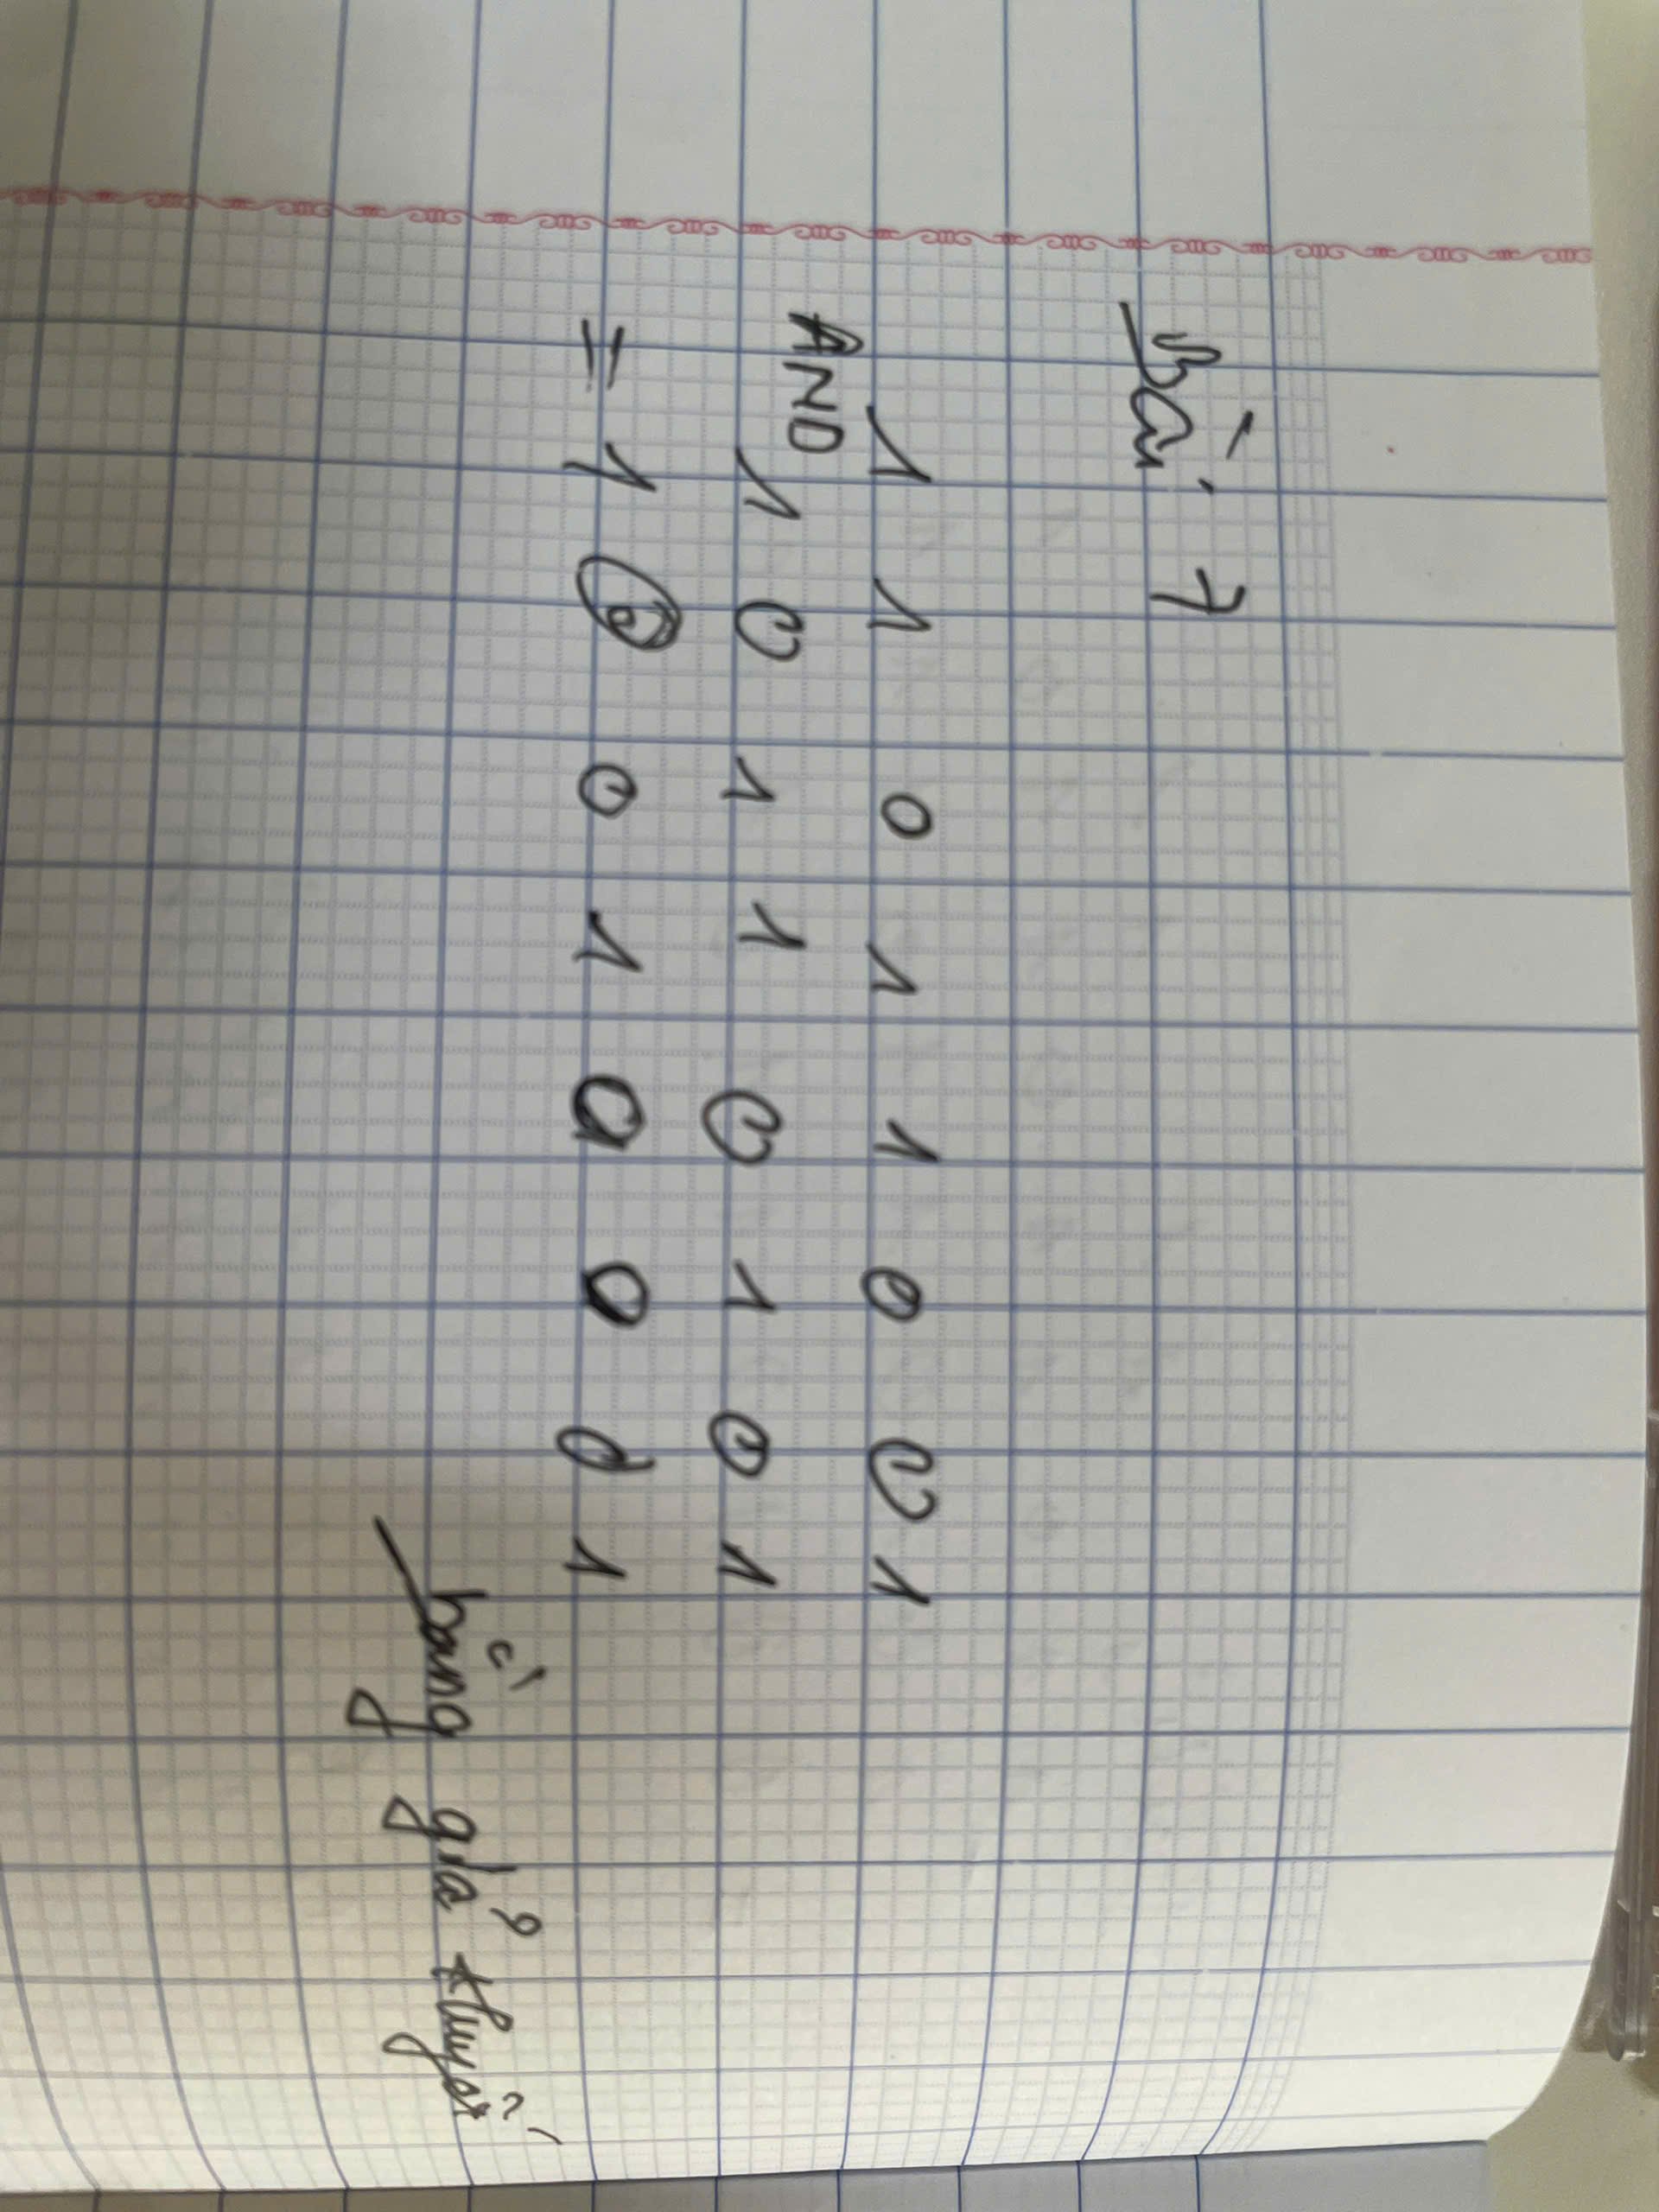 Bài 7
1 1 0 1 1 0 0 1
AND
1 0 1 1 0 1 0 1
= 1 0 0 1 0 0 0 1
bằng giả thuyết